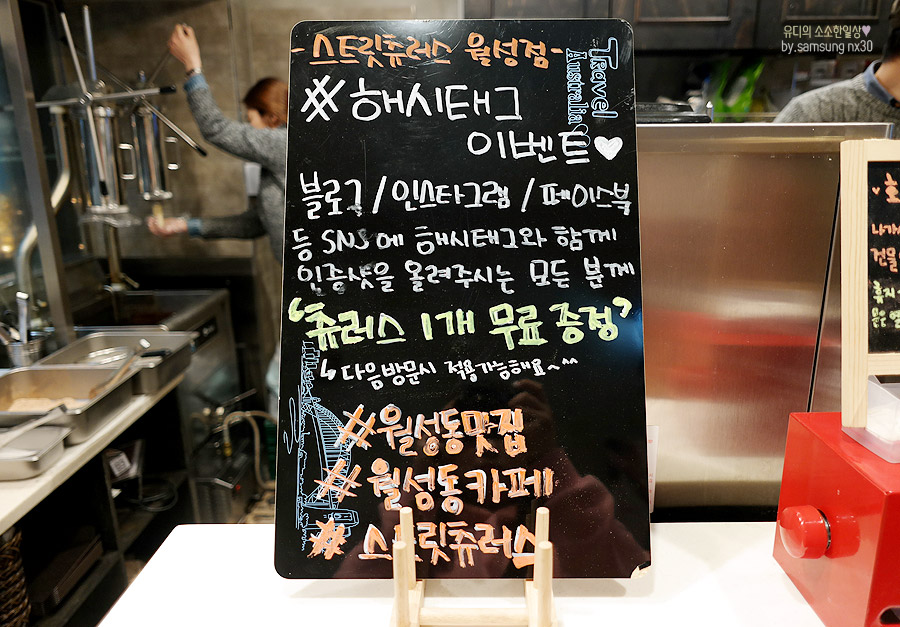 유디의 소소한일상♥
by.samsung nx30
-스트릿츄러스 월성점-
Travel
Australia
#해시태그
이벤트♥
블로그/인스타그램/페이스북
등 SNS에 해시태그와 함께
인증샷을 올려주시는 모든 분께
'츄러스 1개 무료증정'
↳다음방문시 적용가능해요~^^
#월성동맛집
#월성동카페
#스트릿츄러스